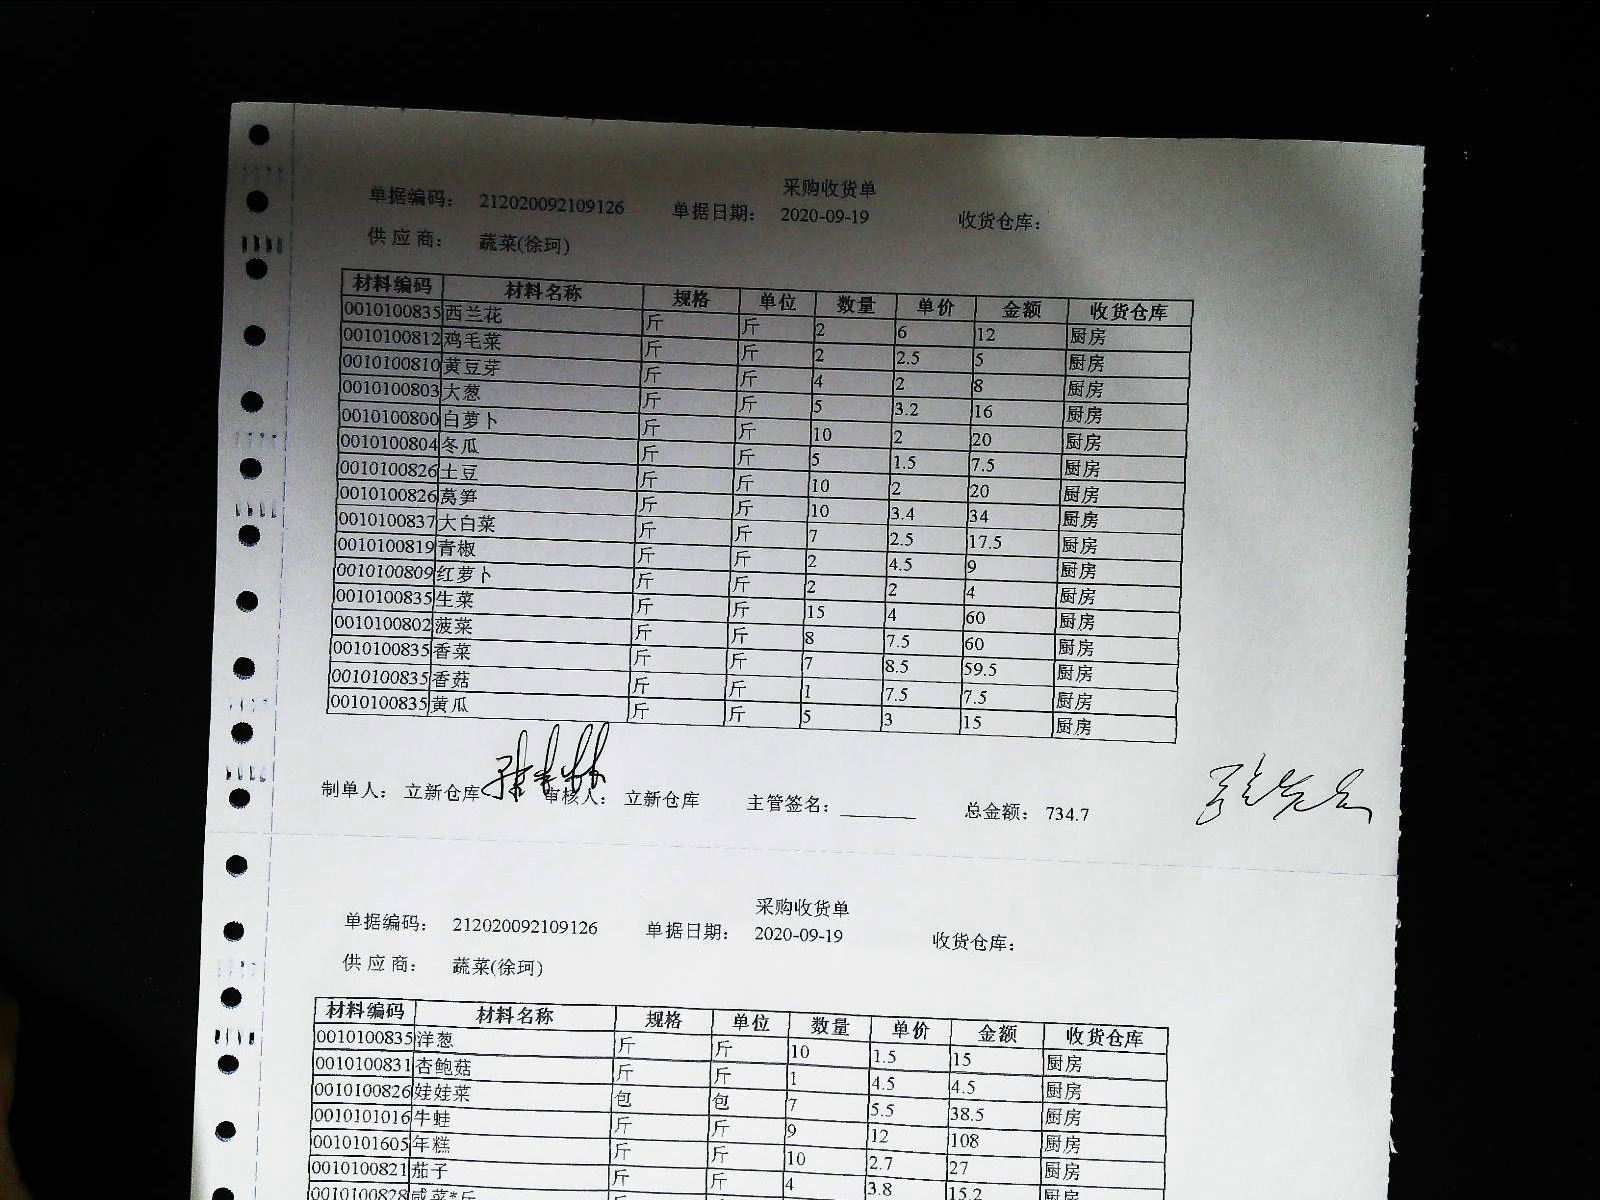 采购收货单
单据编码： 212020092109126 单据日期： 2020-09-19 收货仓库：
供 应 商： 蔬菜(徐珂)
材料编码 材料名称 规格 单位 数量 单价 金额 收货仓库
0010100835 西兰花 斤 斤 2 6 12 厨房
0010100812 鸡毛菜 斤 斤 2 2.5 5 厨房
0010100810 黄豆芽 斤 斤 4 2 8 厨房
0010100803 大葱 斤 斤 5 3.2 16 厨房
0010100800 白萝卜 斤 斤 10 2 20 厨房
0010100804 冬瓜 斤 斤 5 1.5 7.5 厨房
0010100826 土豆 斤 斤 10 2 20 厨房
0010100826 莴笋 斤 斤 10 3.4 34 厨房
0010100837 大白菜 斤 斤 7 2.5 17.5 厨房
0010100819 青椒 斤 斤 2 4.5 9 厨房
0010100809 红萝卜 斤 斤 2 2 4 厨房
0010100835 生菜 斤 斤 15 4 60 厨房
0010100802 菠菜 斤 斤 8 7.5 60 厨房
0010100835 香菜 斤 斤 7 8.5 59.5 厨房
0010100835 香菇 斤 斤 1 7.5 7.5 厨房
0010100835 黄瓜 斤 斤 5 3 15 厨房
制单人： 立新仓库 审核人： 立新仓库 主管签名： 总金额： 734.7
采购收货单
单据编码： 212020092109126 单据日期： 2020-09-19 收货仓库：
供 应 商： 蔬菜(徐珂)
材料编码 材料名称 规格 单位 数量 单价 金额 收货仓库
0010100835 洋葱 斤 斤 10 1.5 15 厨房
0010100831 杏鲍菇 斤 斤 1 4.5 4.5 厨房
0010100826 娃娃菜 包 包 7 5.5 38.5 厨房
0010101016 牛蛙 斤 斤 9 12 108 厨房
0010101605 年糕 斤 斤 10 2.7 27 厨房
0010100821 茄子 斤 斤 4 3.8 15.2 厨房
0010100828 咸菜*斤 厨房